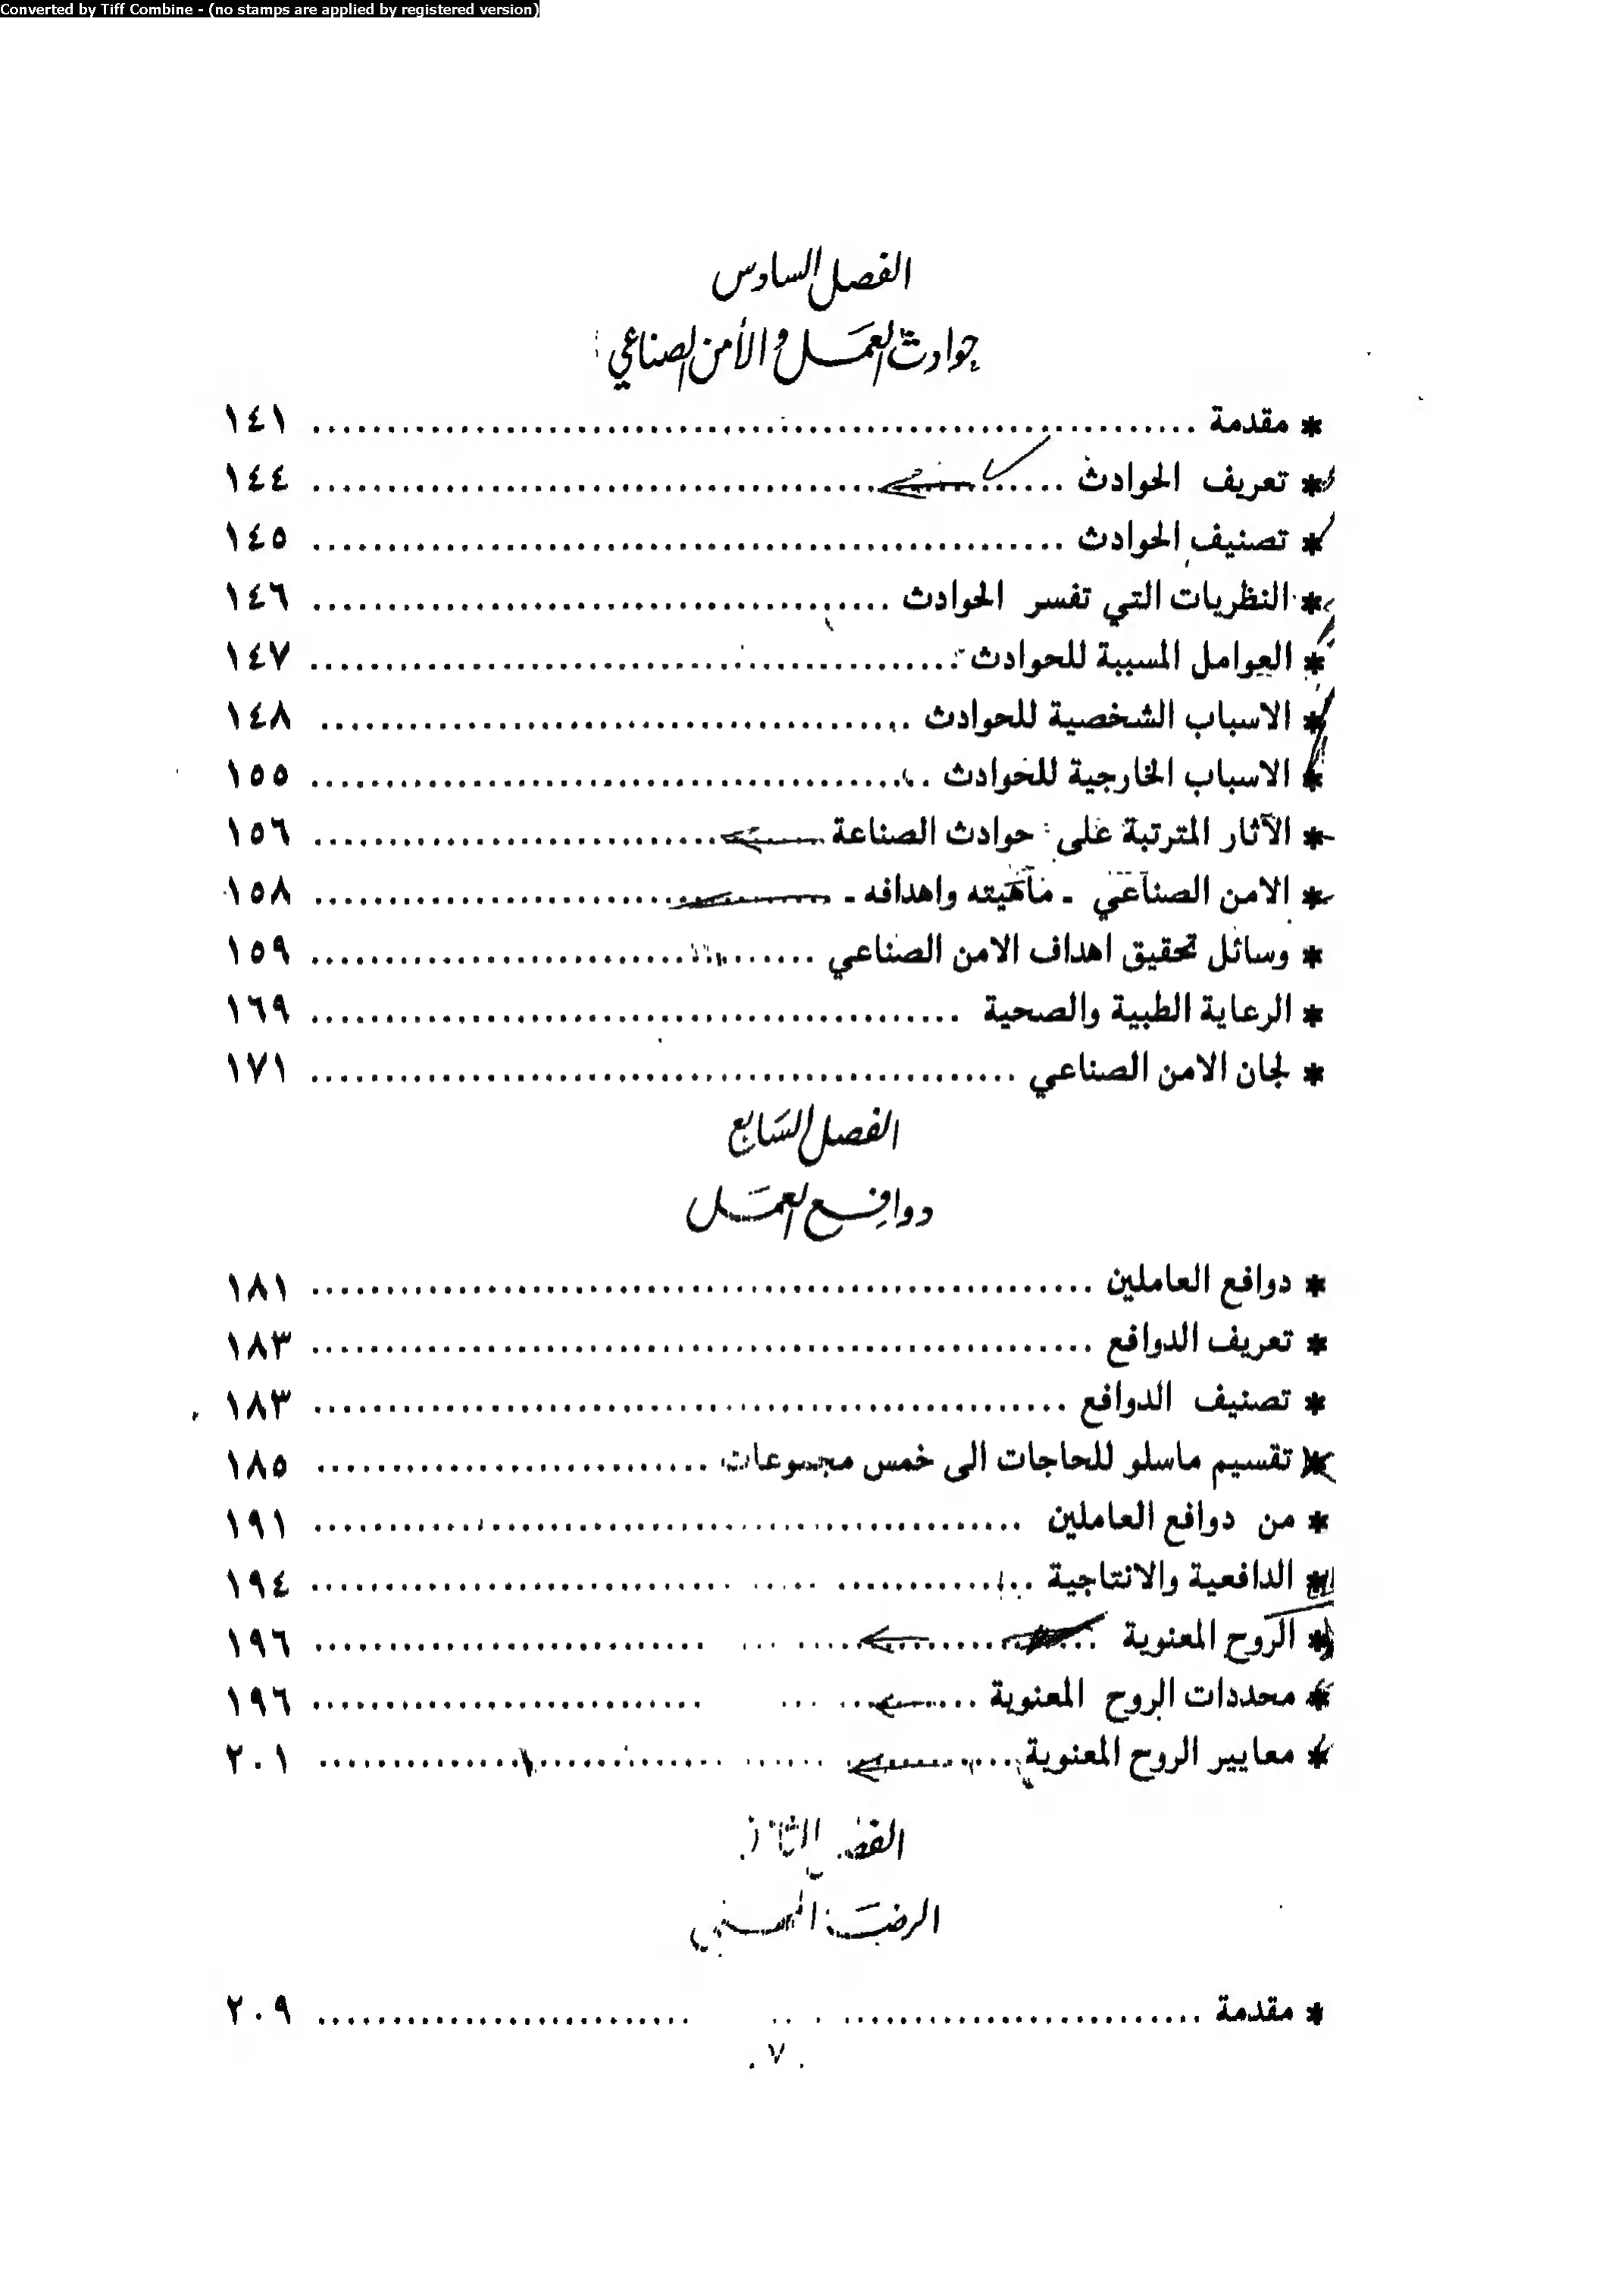 Converted by Tiff Combine - (no stamps are applied by registered version)
الفصل السادس
حوادث العمل والأمن الصناعي
* مقدمة ........................................ ١٤١
* تعريف الحوادث ........................................ ١٤٤
* تصنيف الحوادث ........................................ ١٤٥
* النظريات التي تفسر الحوادث ........................................ ١٤٦
* العوامل المسببة للحوادث ........................................ ١٤٧
* الاسباب الشخصية للحوادث ........................................ ١٤٨
* الاسباب الخارجية للحوادث ........................................ ١٥٥
* الآثار المترتبة على حوادث الصناعة ........................................ ١٥٦
* الامن الصناعي - ماهيته واهدافه - ........................................ ١٥٨
* وسائل تحقيق اهداف الامن الصناعي ........................................ ١٥٩
* الرعاية الطبية والصحية ........................................ ١٦٩
* لجان الامن الصناعي ........................................ ١٧١
الفصل السابع
دوافع العمل
* دوافع العاملين ........................................ ١٨١
* تعريف الدوافع ........................................ ١٨٣
* تصنيف الدوافع ........................................ ١٨٣
* تقسيم ماسلو للحاجات الى خمس مجموعات ........................................ ١٨٥
* من دوافع العاملين ........................................ ١٩١
* الدافعية والانتاجية ........................................ ١٩٤
* الروح المعنوية ........................................ ١٩٦
* محددات الروح المعنوية ........................................ ١٩٦
* معايير الروح المعنوية ........................................ ٢٠١
الفصل الثامن
الرضا المهني
* مقدمة ........................................ ٢٠٩
٧